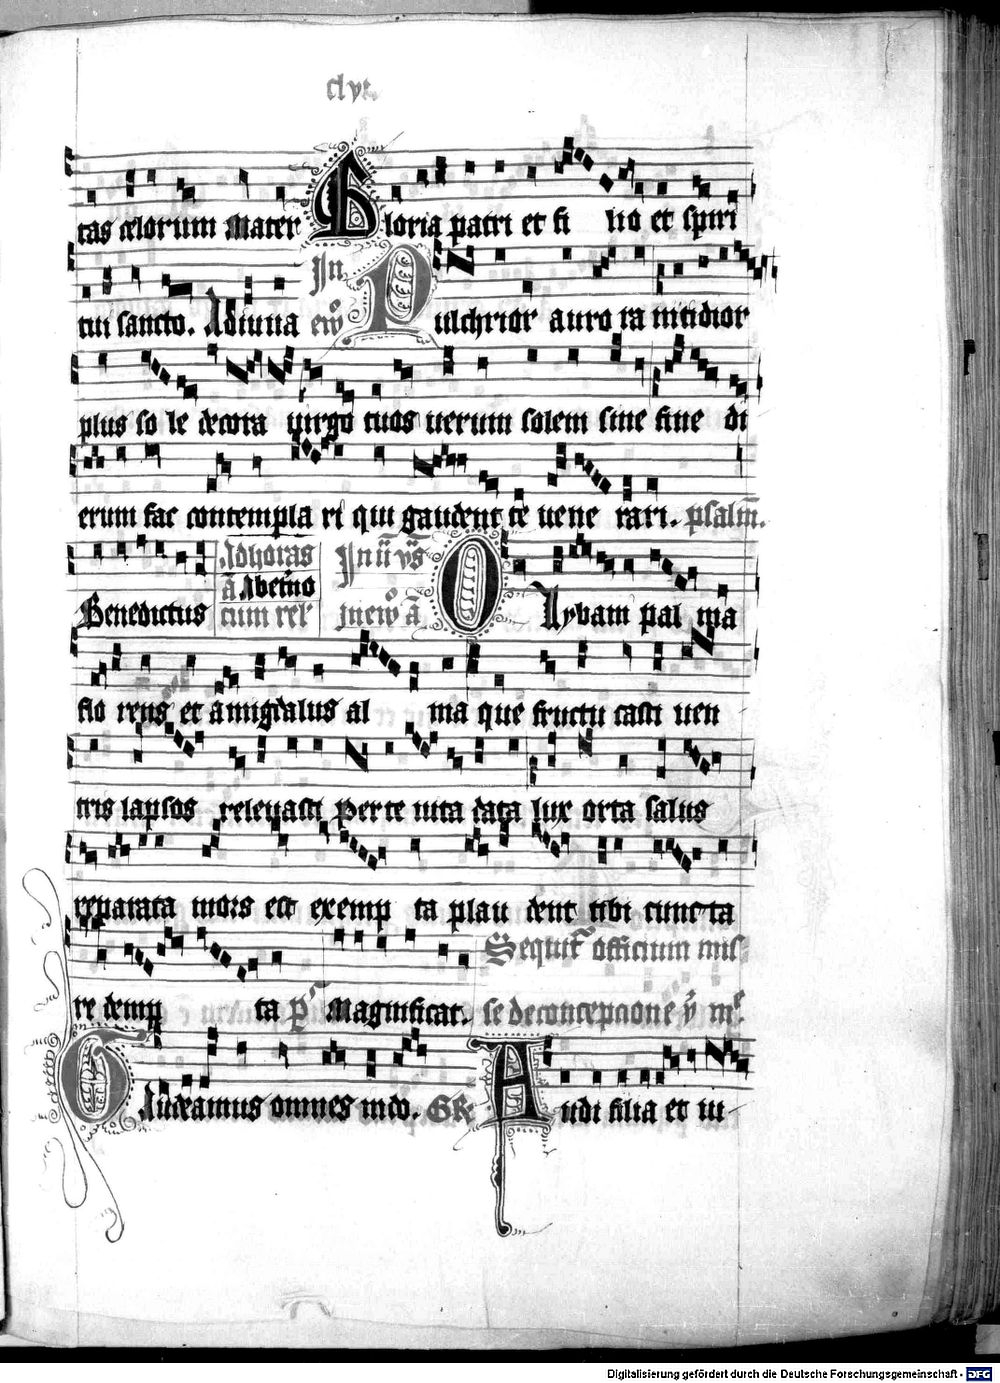 clyt.
tas celorum Mater Gloria patri et fi lio et spiri
tui sancto. Adiuua In ewo Pulchrior auro ra nitidior
plus so le decora virgo tuos uerum solem sine fine di
erum fac contempla ri qui gaudent te uene rari. psalm̄.
Benedictus Ad horas ā Ab etno cum rel' In ii vꝭ in ewo ā O quam pal ma
flo rens et amigdalus al ma que fructu casti uen
tris lapsos releuasti Per te uita data lux orta salus
reparata mors est exemp ta plau dent tibi cuncta
re demp ta p̄ Magnificat. Sequit officium mis
se de conceptione v̄ m
Gaudeamus omnes in do. GR Audi filia et ui
Digitalisierung gefördert durch die Deutsche Forschungsgemeinschaft - DFG